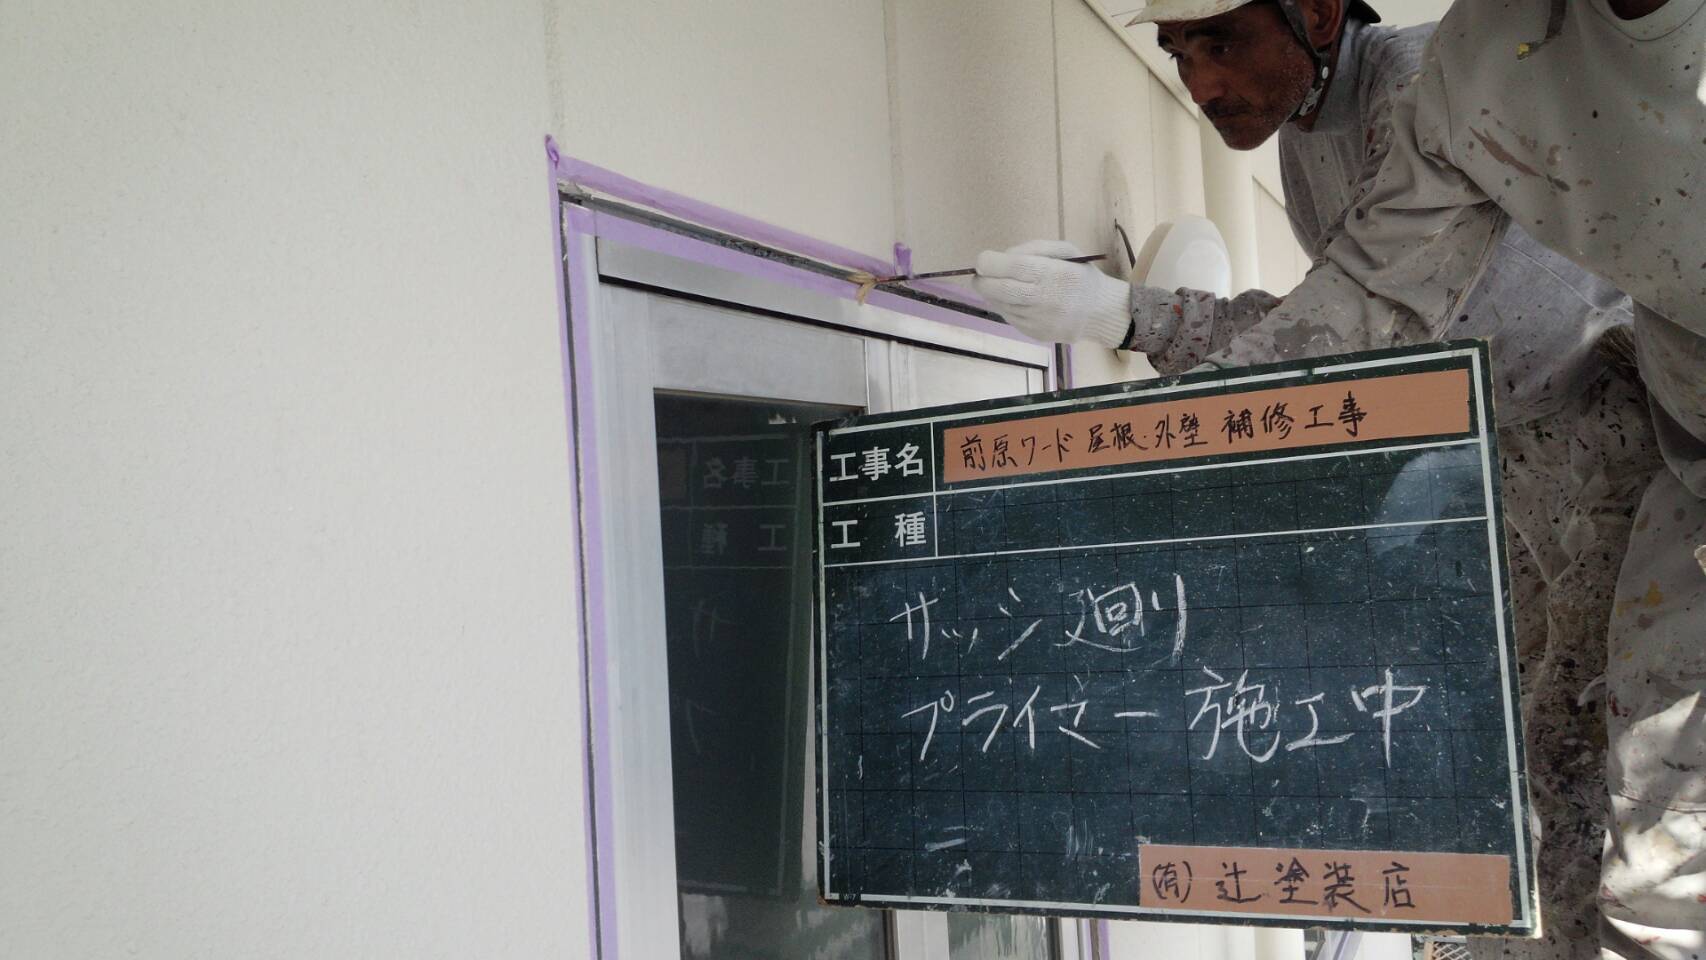 工事名 前原ワード 屋根・外壁 補修工事
工 種
サッシ廻り
プライマー施工中
(有) 辻塗装店